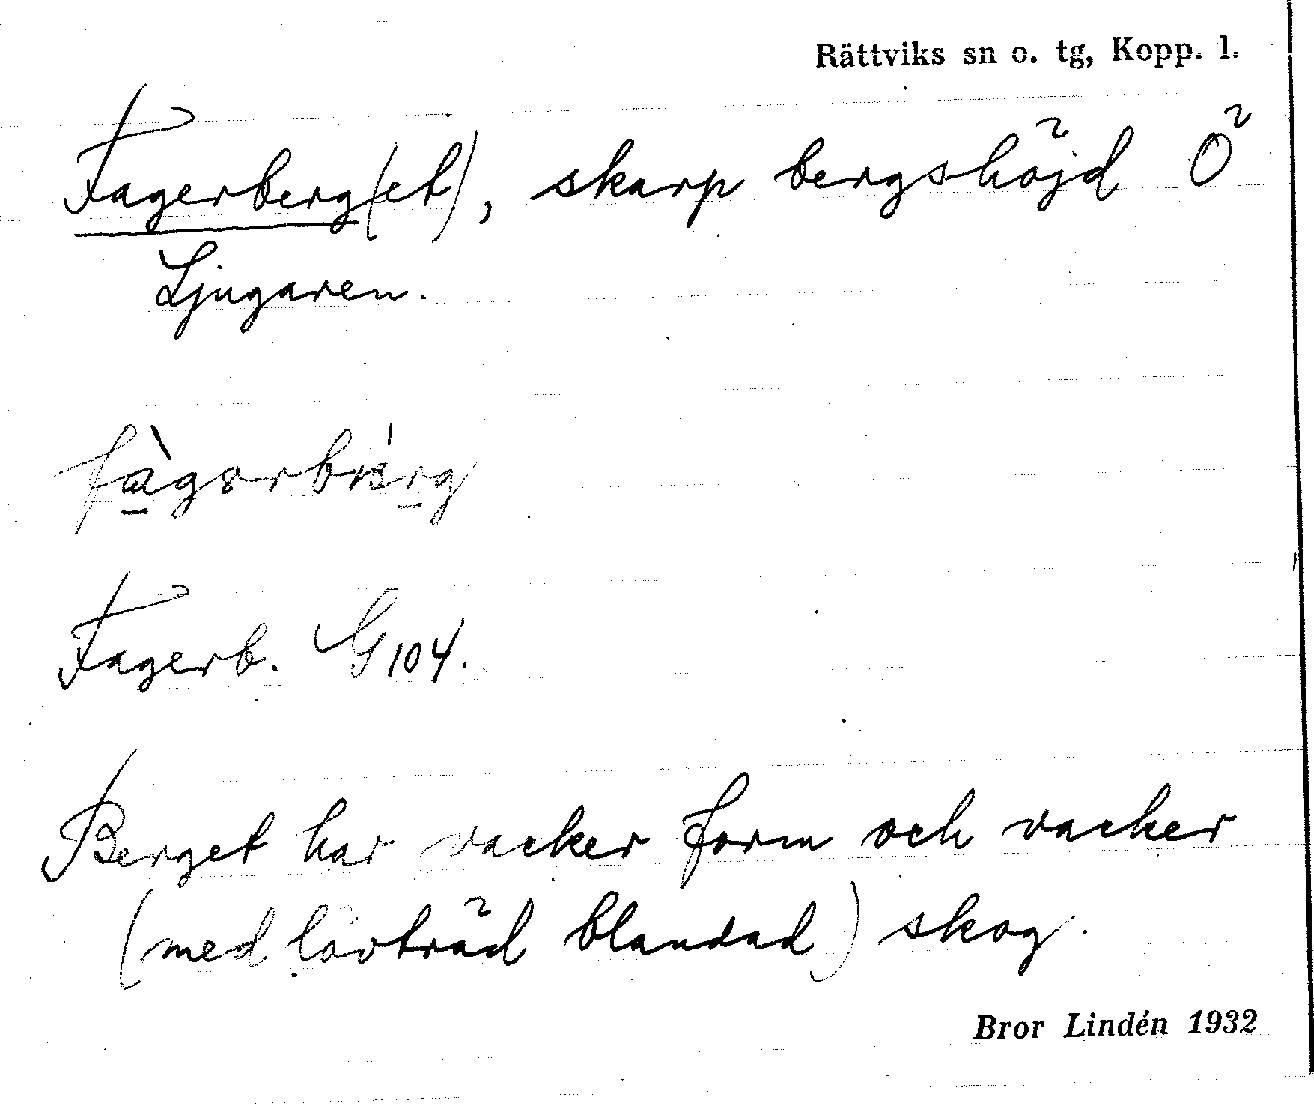 Rättviks sn o. tg, Kopp. l.
Fagerberg(et), skarp bergshöjd Ö
Ljugaren.
Fagerb. G 104.
Berget har vacker form och vacker
(med lövträd blandad) skog.
Bror Lindén 1932